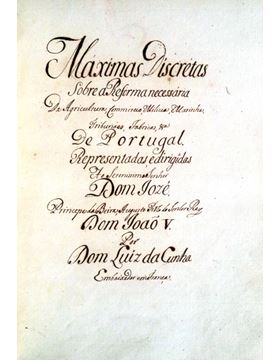 Maximas Discretas
Sobre a Reforma necessaria
Da Agricultura, Commercio, Milicia, Marinha,
Tribunaes, Fabricas, &a
De Portugal.
Representadas e dirigidas
Ao Serenissimo Senhor
Dom Jozé.
Principe do Brazil, Augusto Filho do Senhor Rey
Dom Joaõ V.
Por
Dom Luiz da Cunha
Embaixador em França.